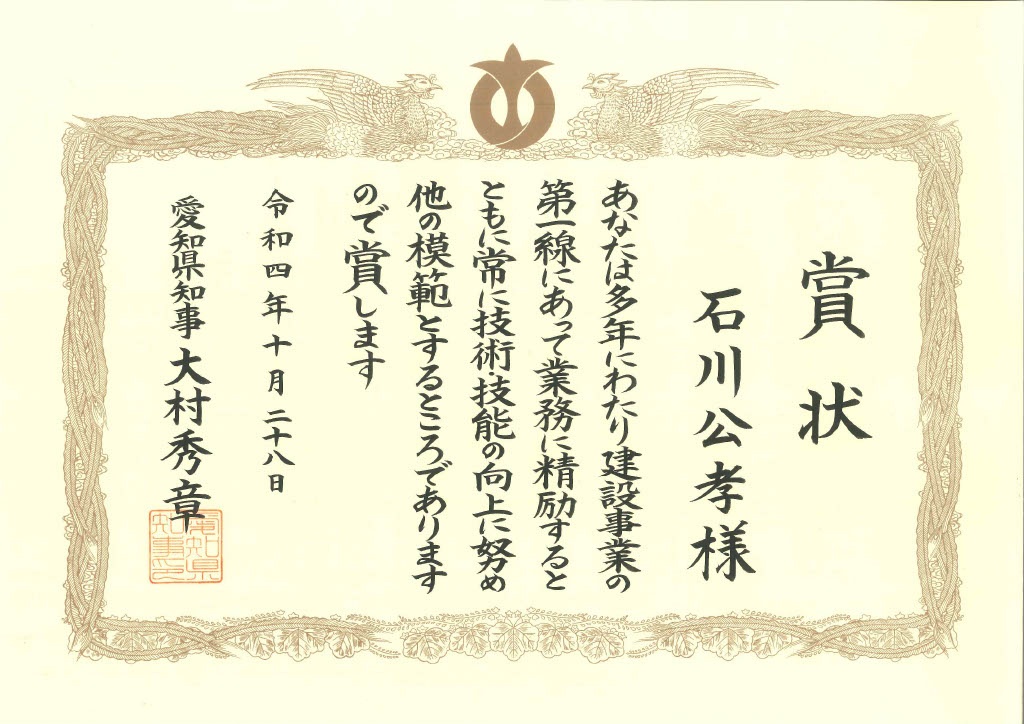 賞状
石川公孝様
あなたは多年にわたり建設事業の
第一線にあって業務に精励すると
ともに常に技術・技能の向上に努め
他の模範とするところであります
ので賞します
令和四年十月二十八日
愛知県知事 大村秀章
愛知県
知事之印